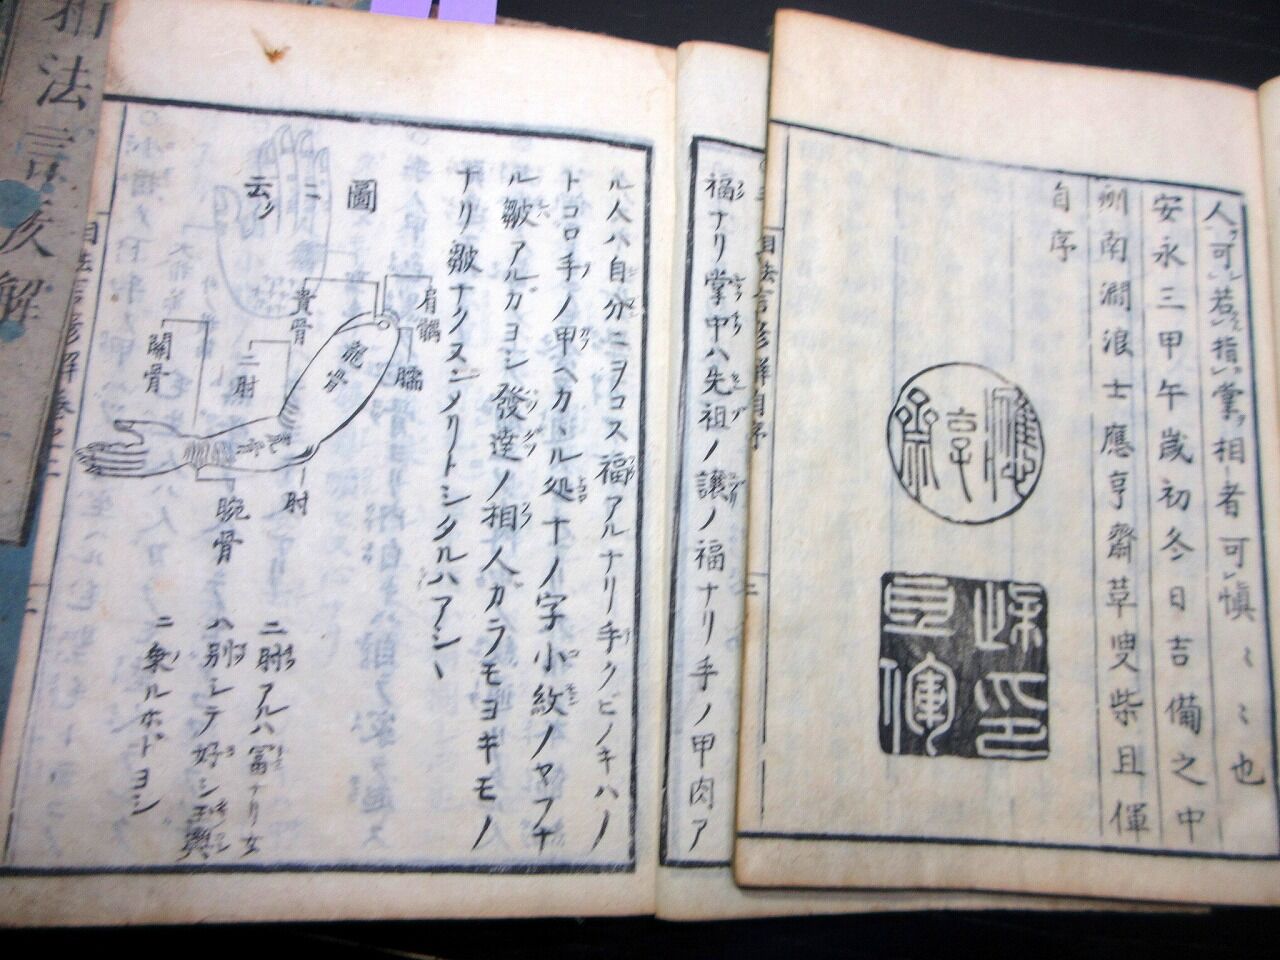 人ハ可若指掌相者可慎〻〻也
安永三甲午歳初冬日吉備之中
州南澗浪士應亨齋草叟柴且渾
自序
應亨齋
福ナリ掌中ハ先祖ノ譲ノ福ナリ手ノ甲肉ア
ル人ハ自分ニヲコス福アルナリ手クビノキハノ
トコロ手ノ甲ヘカヽル処十ノ字小紋ノヤフナ
ル皺アルガヨシ發達ノ相人ガラモヨキモノ
ナリ皺ナクヌンメリトシタルハアシヽ
圖
ニ
云リ
肩髃
臑
貴骨
龍骨
二肘
關骨
虎骨
肘
腕骨
二肘アルハ冨ナリ女
ハ別シテ好シ玉輿
ニ乗ルホドヨシ
相法言亥解